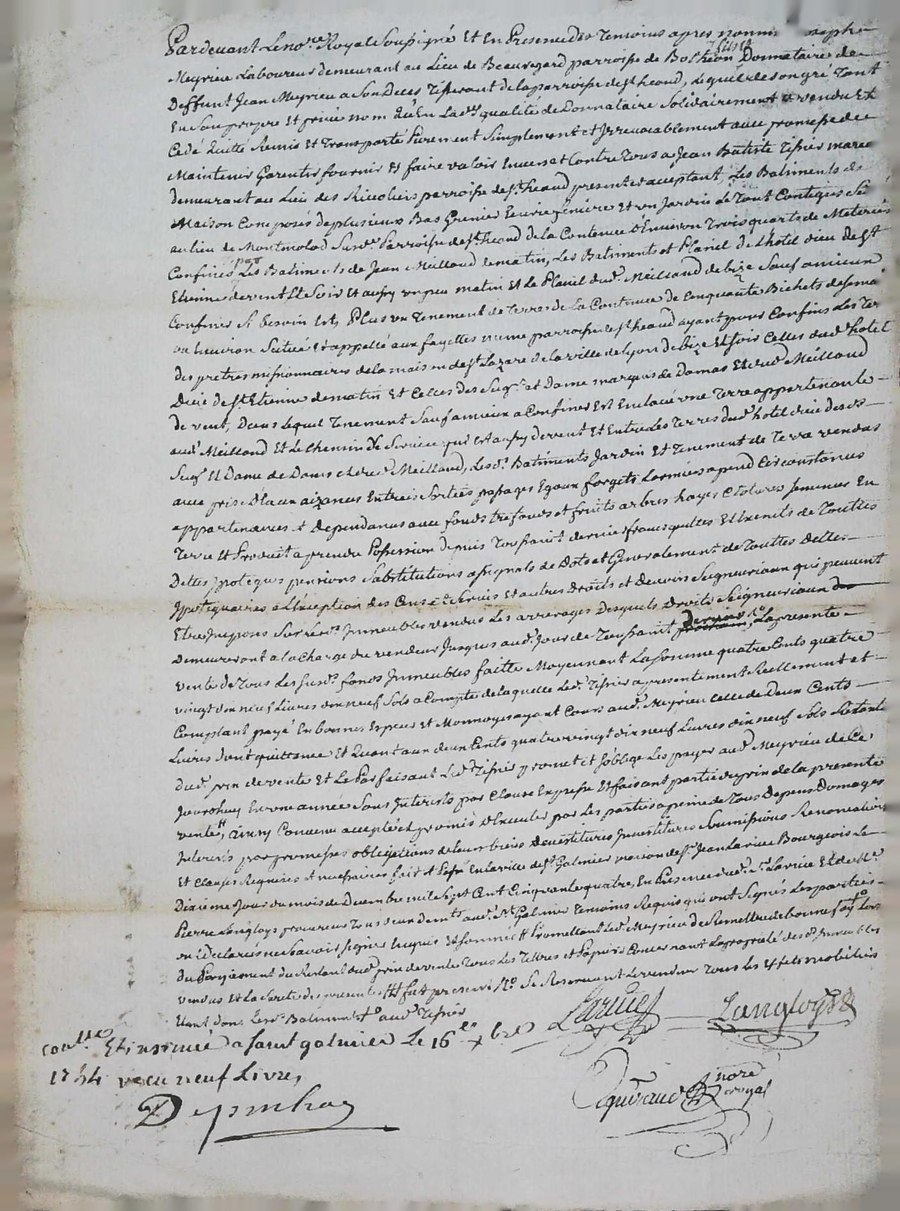 Pardevant Le no.re Royal Soussigné Et En Presence des Temoins apres nommé
Meyrieu Laboureur demeurant au Lieu de Beauregard parroisse de Bothéon Donnataire de
Deffunt Jean Meyrieu a Son Deces Tisserant de la parroisse de St heand, Lequel de son gré Tant
En Son propre Et privé nom qu'En La d.e qualité de Donnataire Solidairement a vendu Et
Cedé Quitté Remis et Transporté Purement Simplement et Irrevocablement avec promesse de
Maintenir Garentir fournir Et faire valoir Envers et Contre Tous a Jean Batiste Tissier
demeurant au Lieu des parroisse de St heand present et acceptant, Les Batiments de
Maison Composés de plusieurs Bas Grenier Ecurie feniere Et un Jardin Le Tout Contigus
au lieu de Montmolad Sus d.e Parroisse de St heand de la Contenue d'Environ Trois quarts de
Confinés par Les Batiments de Jean Meillaud de matin, Les Batiments et Plariel de L'hotel dieu de St
Etienne de vent Et Soir Et aussy un peu matin Et Le Plariel du d. Meilland de bize Sauf a mieux
Confiner Si Besoin Est, Plus un Tenement de Terre de La Contenue de Cinquante Bichets de semé
ou Environ Situé Et appellé aux fayettes meme parroisse de St heand ayant pour Confins Les
des pretres missionnaires de la maison de St Lazare de la ville de Lyon de bize Et soir Celles du d. hotel
Dieu de St Etienne de matin Et Celles des Seig.r et dame marquis de Damas Et du d. Meilland
de vent, Dans Lequel Tenement Sauf a mieux a Confiner Est Enclavé une Terre appertenante
aud. Meilland Et Le Chemin de Service qui Est aussy de vent Et Entre Les Terres du d. hotel dieu
Seig.r Et Dame de Damas et du d. Meilland, Les d. Batiments Jardin Et Tenement de Terre vendus
avec prise D'eau aizances Entrées Sorties passages Egoux forgets Larmiers apend Circonstances
appartenances et Dependances avec fonds trefonds et fruits arbres hayes Clotures Semences En
Terre Et Produit a prendre Possession depuis Toussaint dernier francs quittes Et Exempts de Touttes
Dettes Ypoteques pensions Substitutions assignats de Dots et Generalement de Touttes Dettes
Ypotequaires a L'éxception des Cens et Servis Et autres Droits et Devoirs Seigneuriaux qui peuvent
Etre Imposés Sur Les d. Immeubles vendus Les arrerages Desquels Droits Seigneuriaux
Demeureront a la Charge du vendeur Jusques aud. Jour de Toussaint dernier, La presente
vente de Tous Les susd. fonds Immeubles faitte Moyennant La Somme quatre Cents quatre
vingt dix neuf Livres dix neuf Sols a Compte de laquelle Led. Tissier a presentement Reellement et
Comptant payé En bonnes Especes Et Monnoye ayant Cours aud. Meyrieu Celle de Deux Cents
Livres dont quittance Et Quant aux deux Cents quatre vingt dix neuf Livres dix neuf Sols Restants
du d. prix de vente Et Le Parfaisant Led. Tissier promet Et s'oblige Les payer aud. Meyrieu de Ce
Jourdhuy En une année Sous Interets par Clause Expresse Et faisant partie du prix de la presente
vente, ainsy Convenu accepté et promis d'Executer par Les parties a peine de Tous Depens Domages
Interets par promesses obligations de leurs biens Devestitures Investitures Soumissions Renonciations
Et Clauses Requises et necessaires fait Et Passé En la ville de St Galmier maison de S.r Jean Larive Bourgeois Le
Dixieme Jour du mois de Decembre mil Sept Cent Cinquante quatre, En Presence dud. S.r Larive Et de M.e
Pierre Langloys procureur Tous deux demt. aud. St Galmier Temoins Requis qui ont Signés Les parties
ont déclarés ne Savoir Signer Enquis Et Sommés Promettant Led. Meyrieu de Remettre de bonne foy Lors
du Payement du Restant du d. prix de vente Tous Les Titres et Papiers Concernant La proprieté des d. Immeubles
vendus Et La Sureté des presentes Se Reservant Le vendeur Tous Les Effets mobiliers
Etant dans Les d. Batiments aud. Tissier
Larive Langloys
Conttrollé Et insinué a saint galmier Le 16.e xbre
1754 reçu neuf Livres
nore
royal